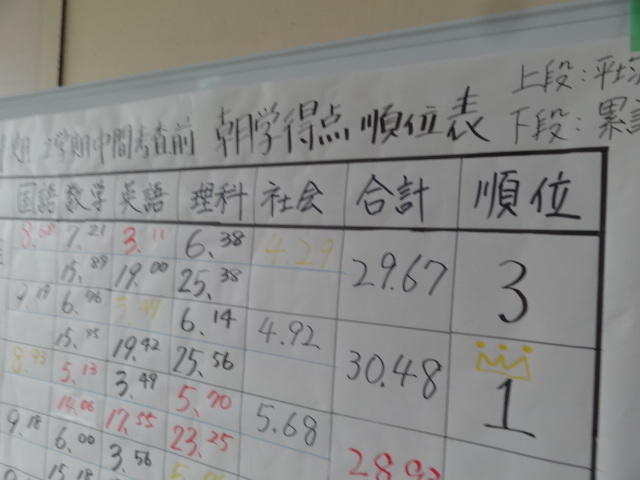 上段:平均
2学期中間考査前 朝学得点順位表 下段:累計
国語 数学 英語 理科 社会 合計 順位
8.58 7.21 3.11 6.38 4.29 29.67 3
15.89 19.00 25.38
9.19 6.96 3.49 6.14 4.92 30.48 1
15.95 19.42 25.56
8.93 5.13 3.49 5.70 5.68
14.06 17.55 23.25
9.18 6.00 3.56
15.18